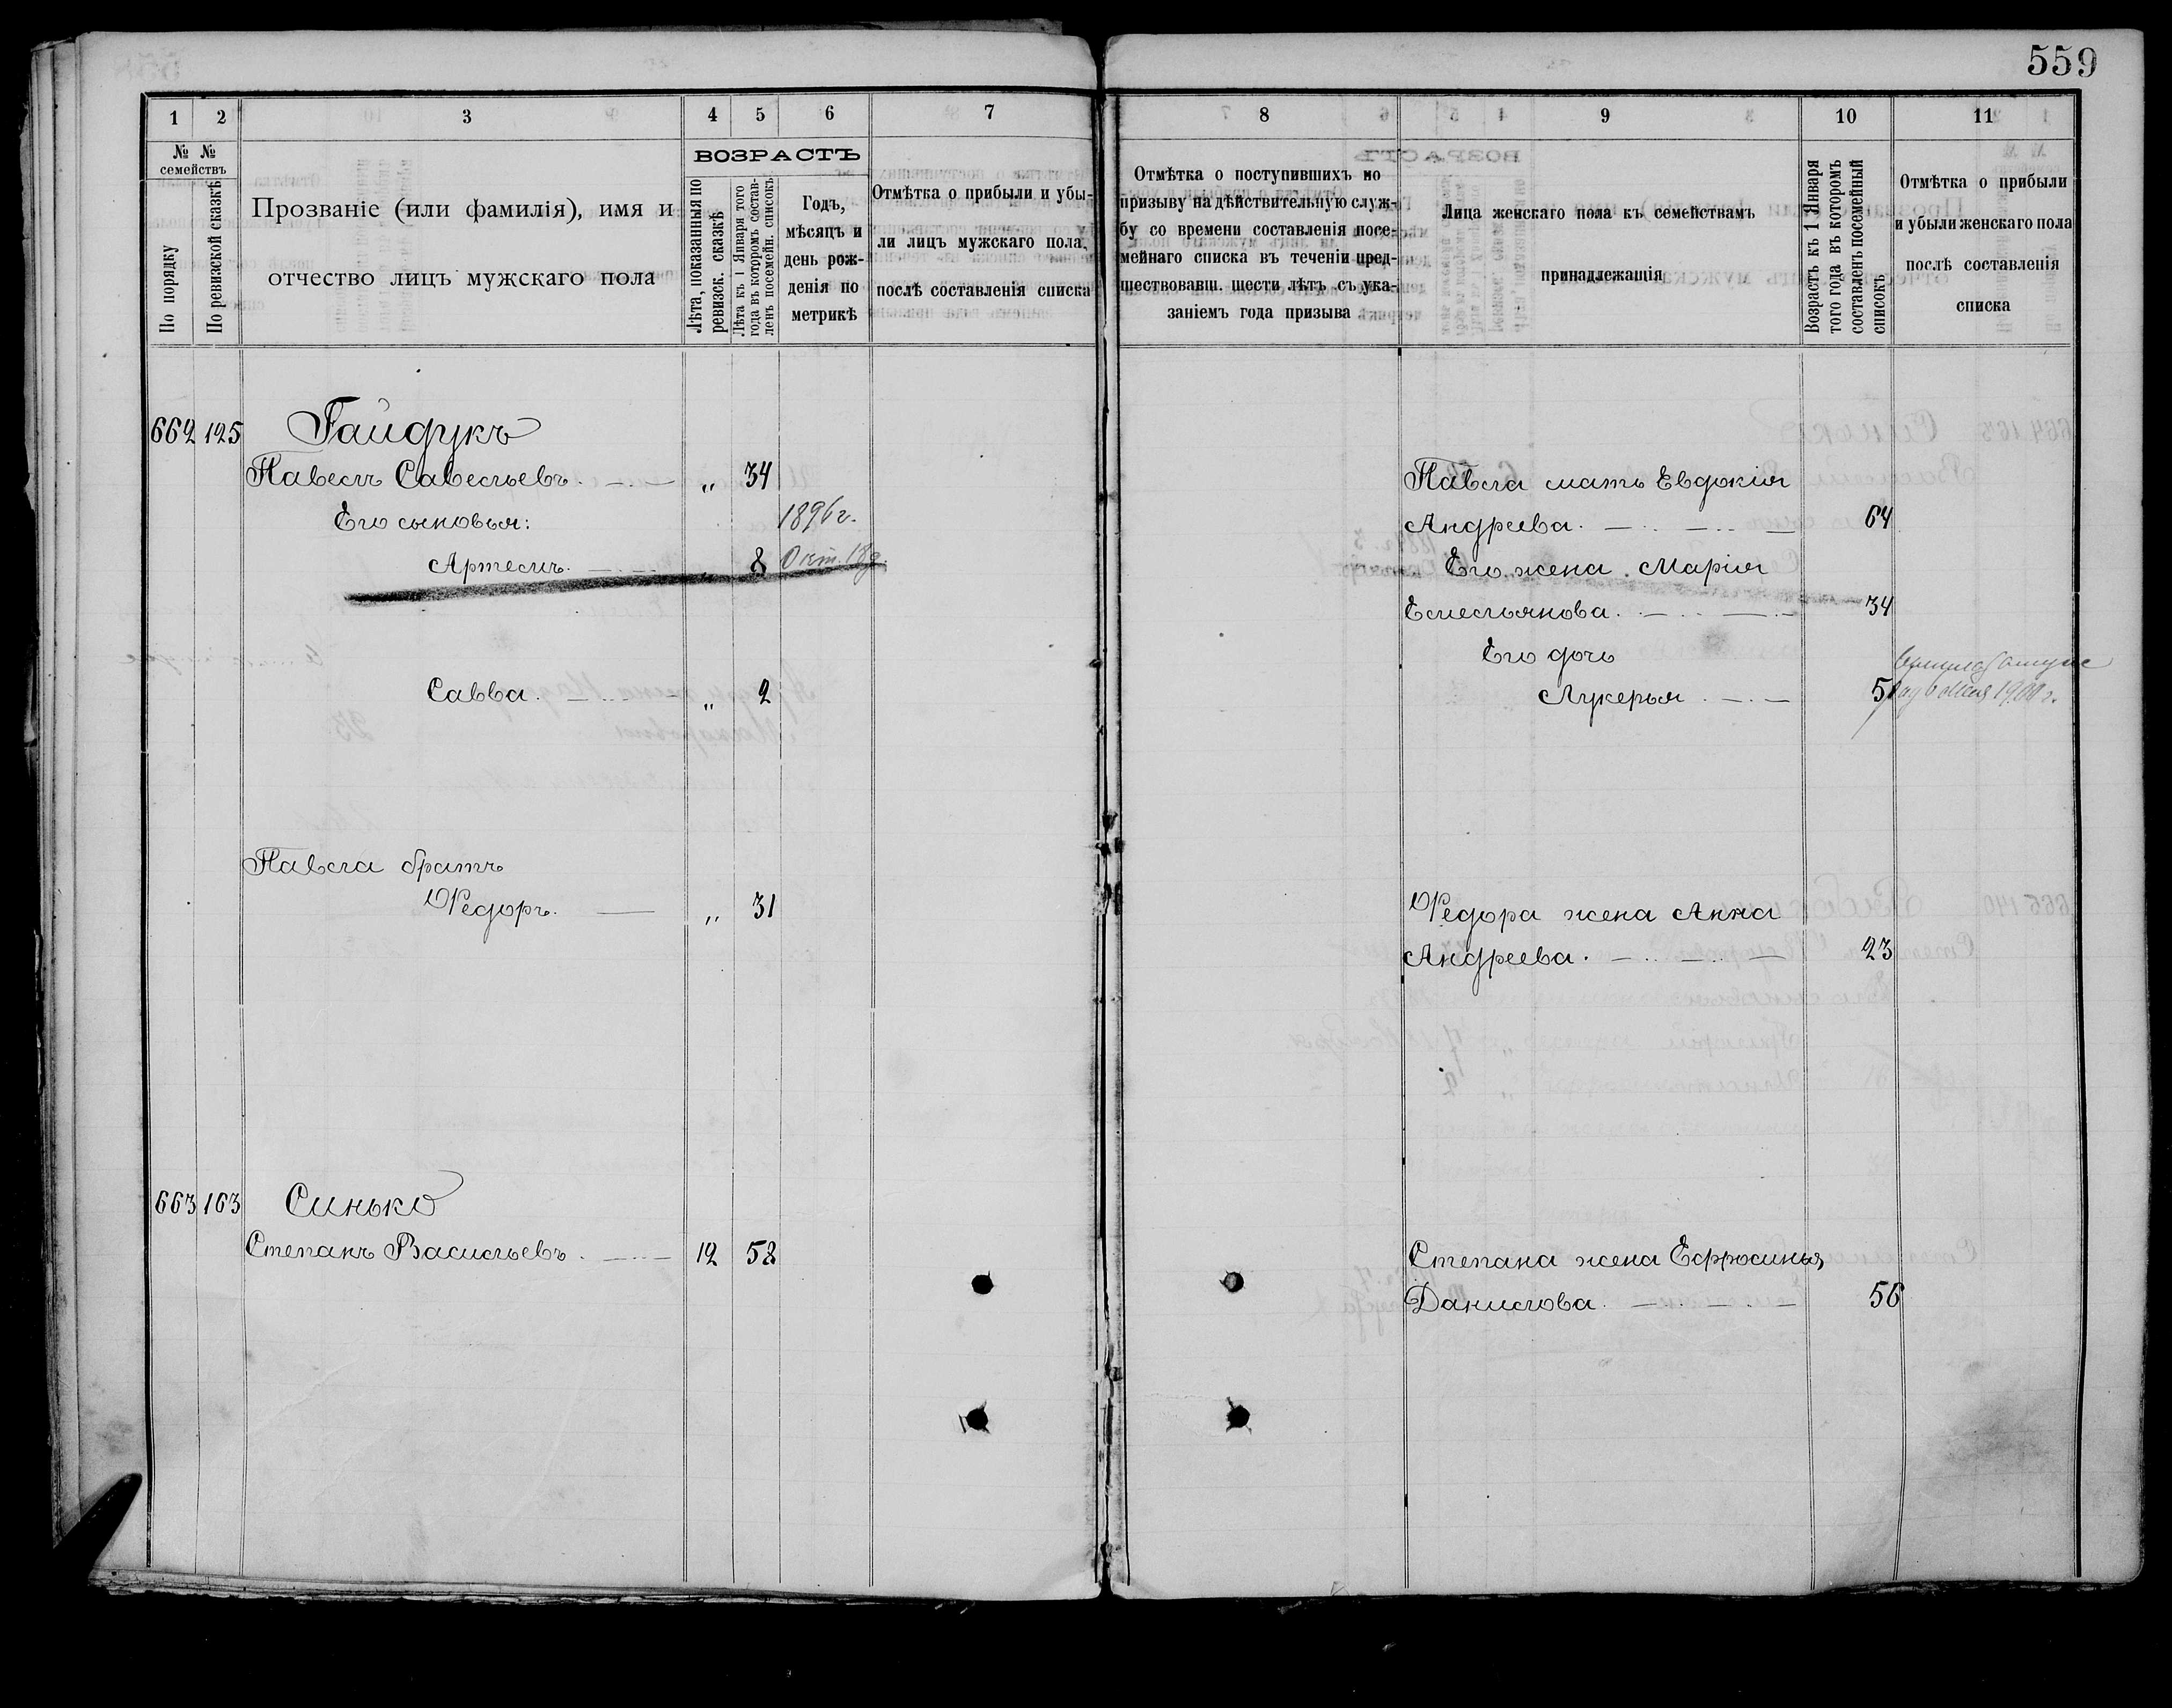 559
1 2 3 4 5 6 7
№ № семействъ
По порядку
По ревизской сказкѣ
Прозваніе (или фамилія), имя и
отчество лицъ мужскаго пола
ВОЗРАСТЪ
Лѣта, показанныя по
ревизск. сказкѣ
Лѣта къ 1 Января того
года въ которомъ состав-
ленъ посемейн. списокъ
Годъ,
мѣсяцъ и
день рож-
денія по
метрикѣ
Отмѣтка о прибыли и убы-
ли лицъ мужскаго пола,
послѣ составленія списка
662 125 Гайдукъ
Павелъ Савельевъ. „ 34
Его сыновья: 1896 г.
Артемъ. „ 8 Окт. 18 д.
Савва. „ 2
Павла братъ
Ѳедоръ. „ 31
663 163 Синько
Степанъ Васильевъ. 12 58
8 9 10 11
Отмѣтка о поступившихъ по
призыву на дѣйствительную служ-
бу со времени составленія посе-
мейнаго списка въ теченіи пред-
шествовавш. шести лѣтъ съ ука-
заніемъ года призыва
Лица женскаго пола къ семействамъ
принадлежащія
Возрастъ къ 1 Января
того года въ которомъ
составленъ посемейный
списокъ
Отмѣтка о прибыли
и убыли женскаго пола
послѣ составленія
списка
Павла мать Евдокія
Андреева. 64
Его жена Марія
Емельянова. 34
Его дочь
Лукерья 5
Ѳедора жена Анна
Андреева. 23
Степана жена Ефросинья
Данилова. 56